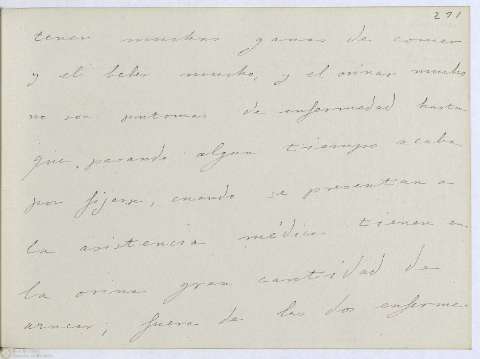 291
tener muchas ganas de comer
y el beber mucho, y el orinar mucho
no son sintomas de enfermedad hasta
que, pasando algun tiempo acaba
por fijarse, cuando se presentan a
la asistencia médica tienen en
la orina gran cantidad de
azucar; fuera de las dos enferme-